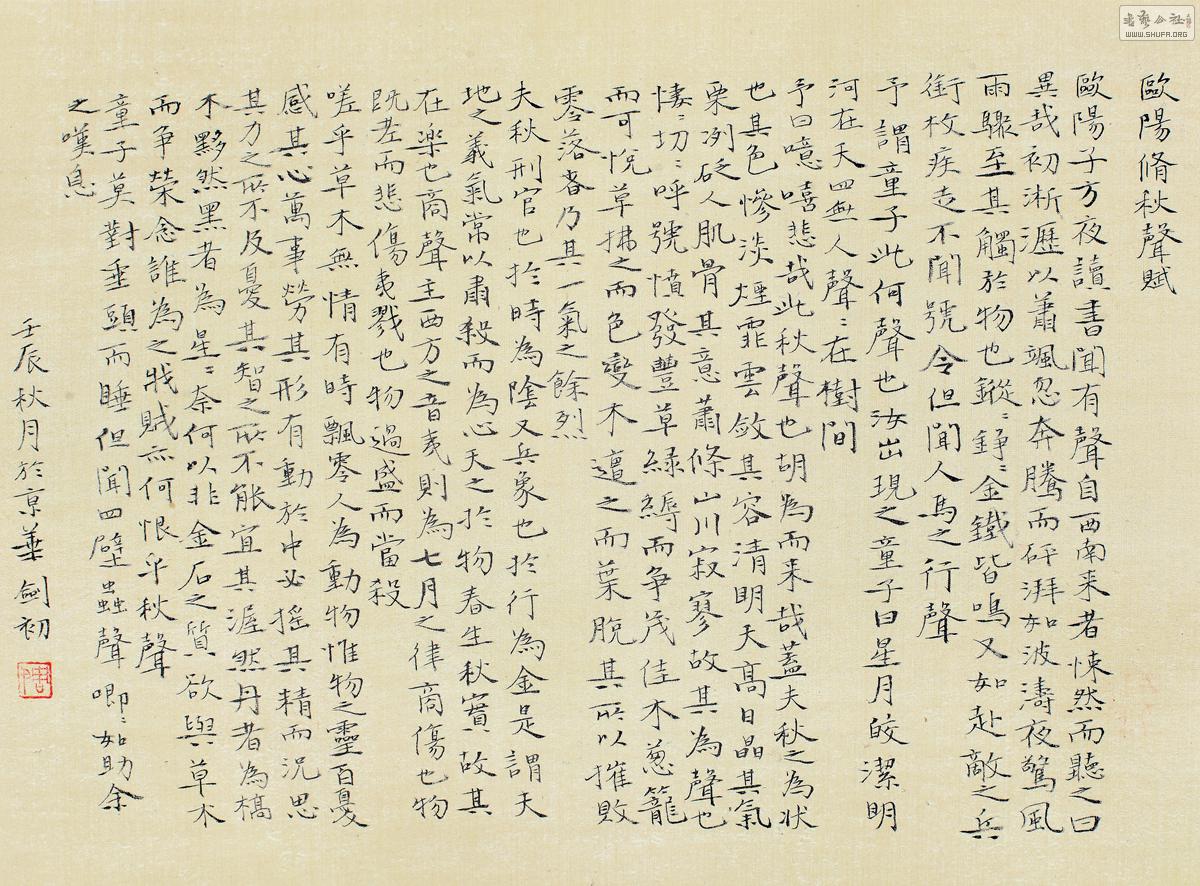 歐陽脩秋聲賦
歐陽子方夜讀書聞有聲自西南来者悚然而聽之曰
異哉初淅瀝以蕭颯忽奔騰而砰湃如波濤夜驚風
雨驟至其觸於物也鏦〻錚〻金鐵皆鳴又如赴敵之兵
銜枚疾走不聞號令但聞人馬之行聲
予謂童子此何聲也汝出現之童子曰星月皎潔明
河在天四無人聲〻在樹間
予曰噫嘻悲哉此秋聲也胡為而来哉蓋夫秋之為狀
也其色慘淡煙霏雲斂其容清明天高日晶其氣
栗冽砭人肌骨其意蕭條山川寂寥故其為聲也
悽〻切〻呼號憤發豐草綠縟而争茂佳木葱籠
而可悅草拂之而色變木遭之而葉脫其所以摧敗
零落者乃其一氣之餘烈
夫秋刑官也於時為陰又兵象也於行為金是謂天
地之義氣常以肅殺而為心天之於物春生秋實故其
在楽也商聲主西方之音夷則為七月之律商傷也物
既老而悲傷夷戮也物過盛而當殺
嗟乎草木無情有時飄零人為動物惟物之靈百憂
感其心萬事勞其形有動於中必摇其精而況思
其力之所不及憂其智之所不能宜其渥然丹者為槁
木黟然黑者為星〻奈何以非金石之質欲與草木
而争榮念誰為之戕賊亦何恨乎秋聲
童子莫對垂頭而睡但聞四壁蟲聲唧〻如助余
之嘆息
壬辰秋月於京華劍初
书艺公社
WWW.SHUFA.ORG